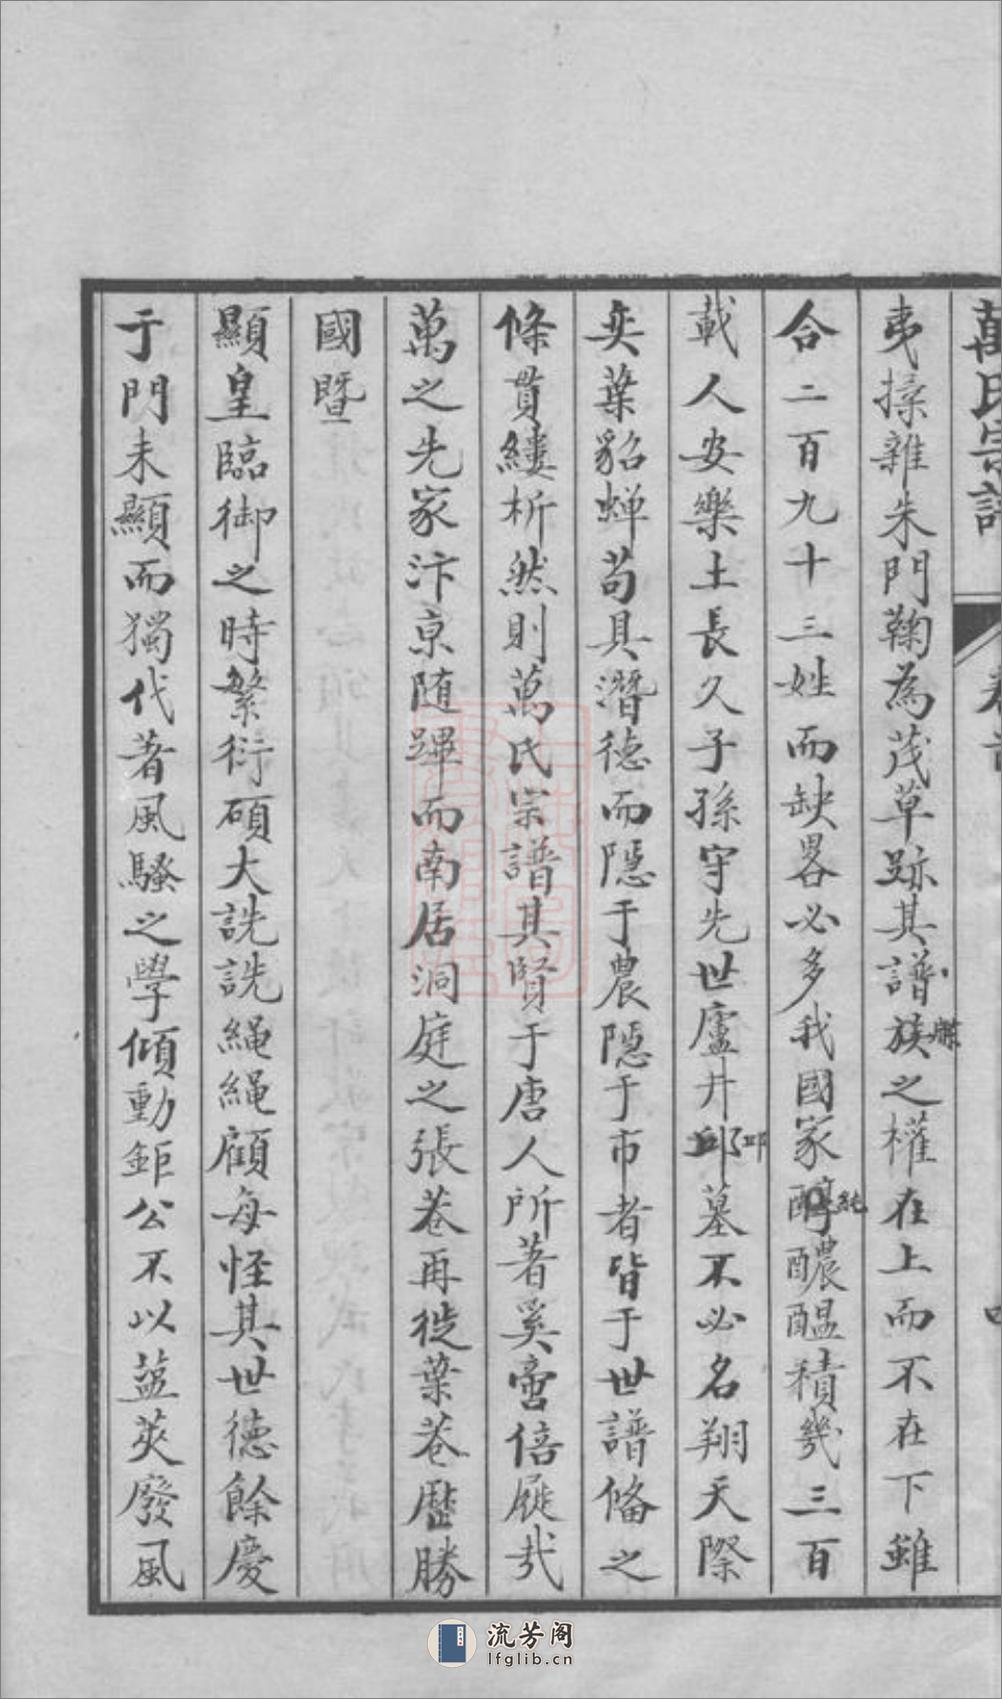 萬氏宗譜
卷首
夷揉雜朱門鞠為茂草跡其譜族之權在上而不在下雖
合二百九十三姓而缺畧必多我國家醇醲醞積幾三百
純
載人安樂土長久子孫守先世廬井邱墓不必名翔天際
邱
奕葉貂蝉苟具潛徳而隱于農隱于市者皆于世譜俻之
條貫縷析然則萬氏宗譜其賢于唐人所著奚啻倍屣㢤
萬之先家汴京随蹕而南居洞庭之張巷再徙葉巷歷勝
國暨
顯皇臨御之時繁衍碩大詵詵繩繩顧每怪其世徳餘慶
于門未顯而獨代著風騷之學傾動鉅公不以藍莢廢風
流芳阁
lfglib.cn